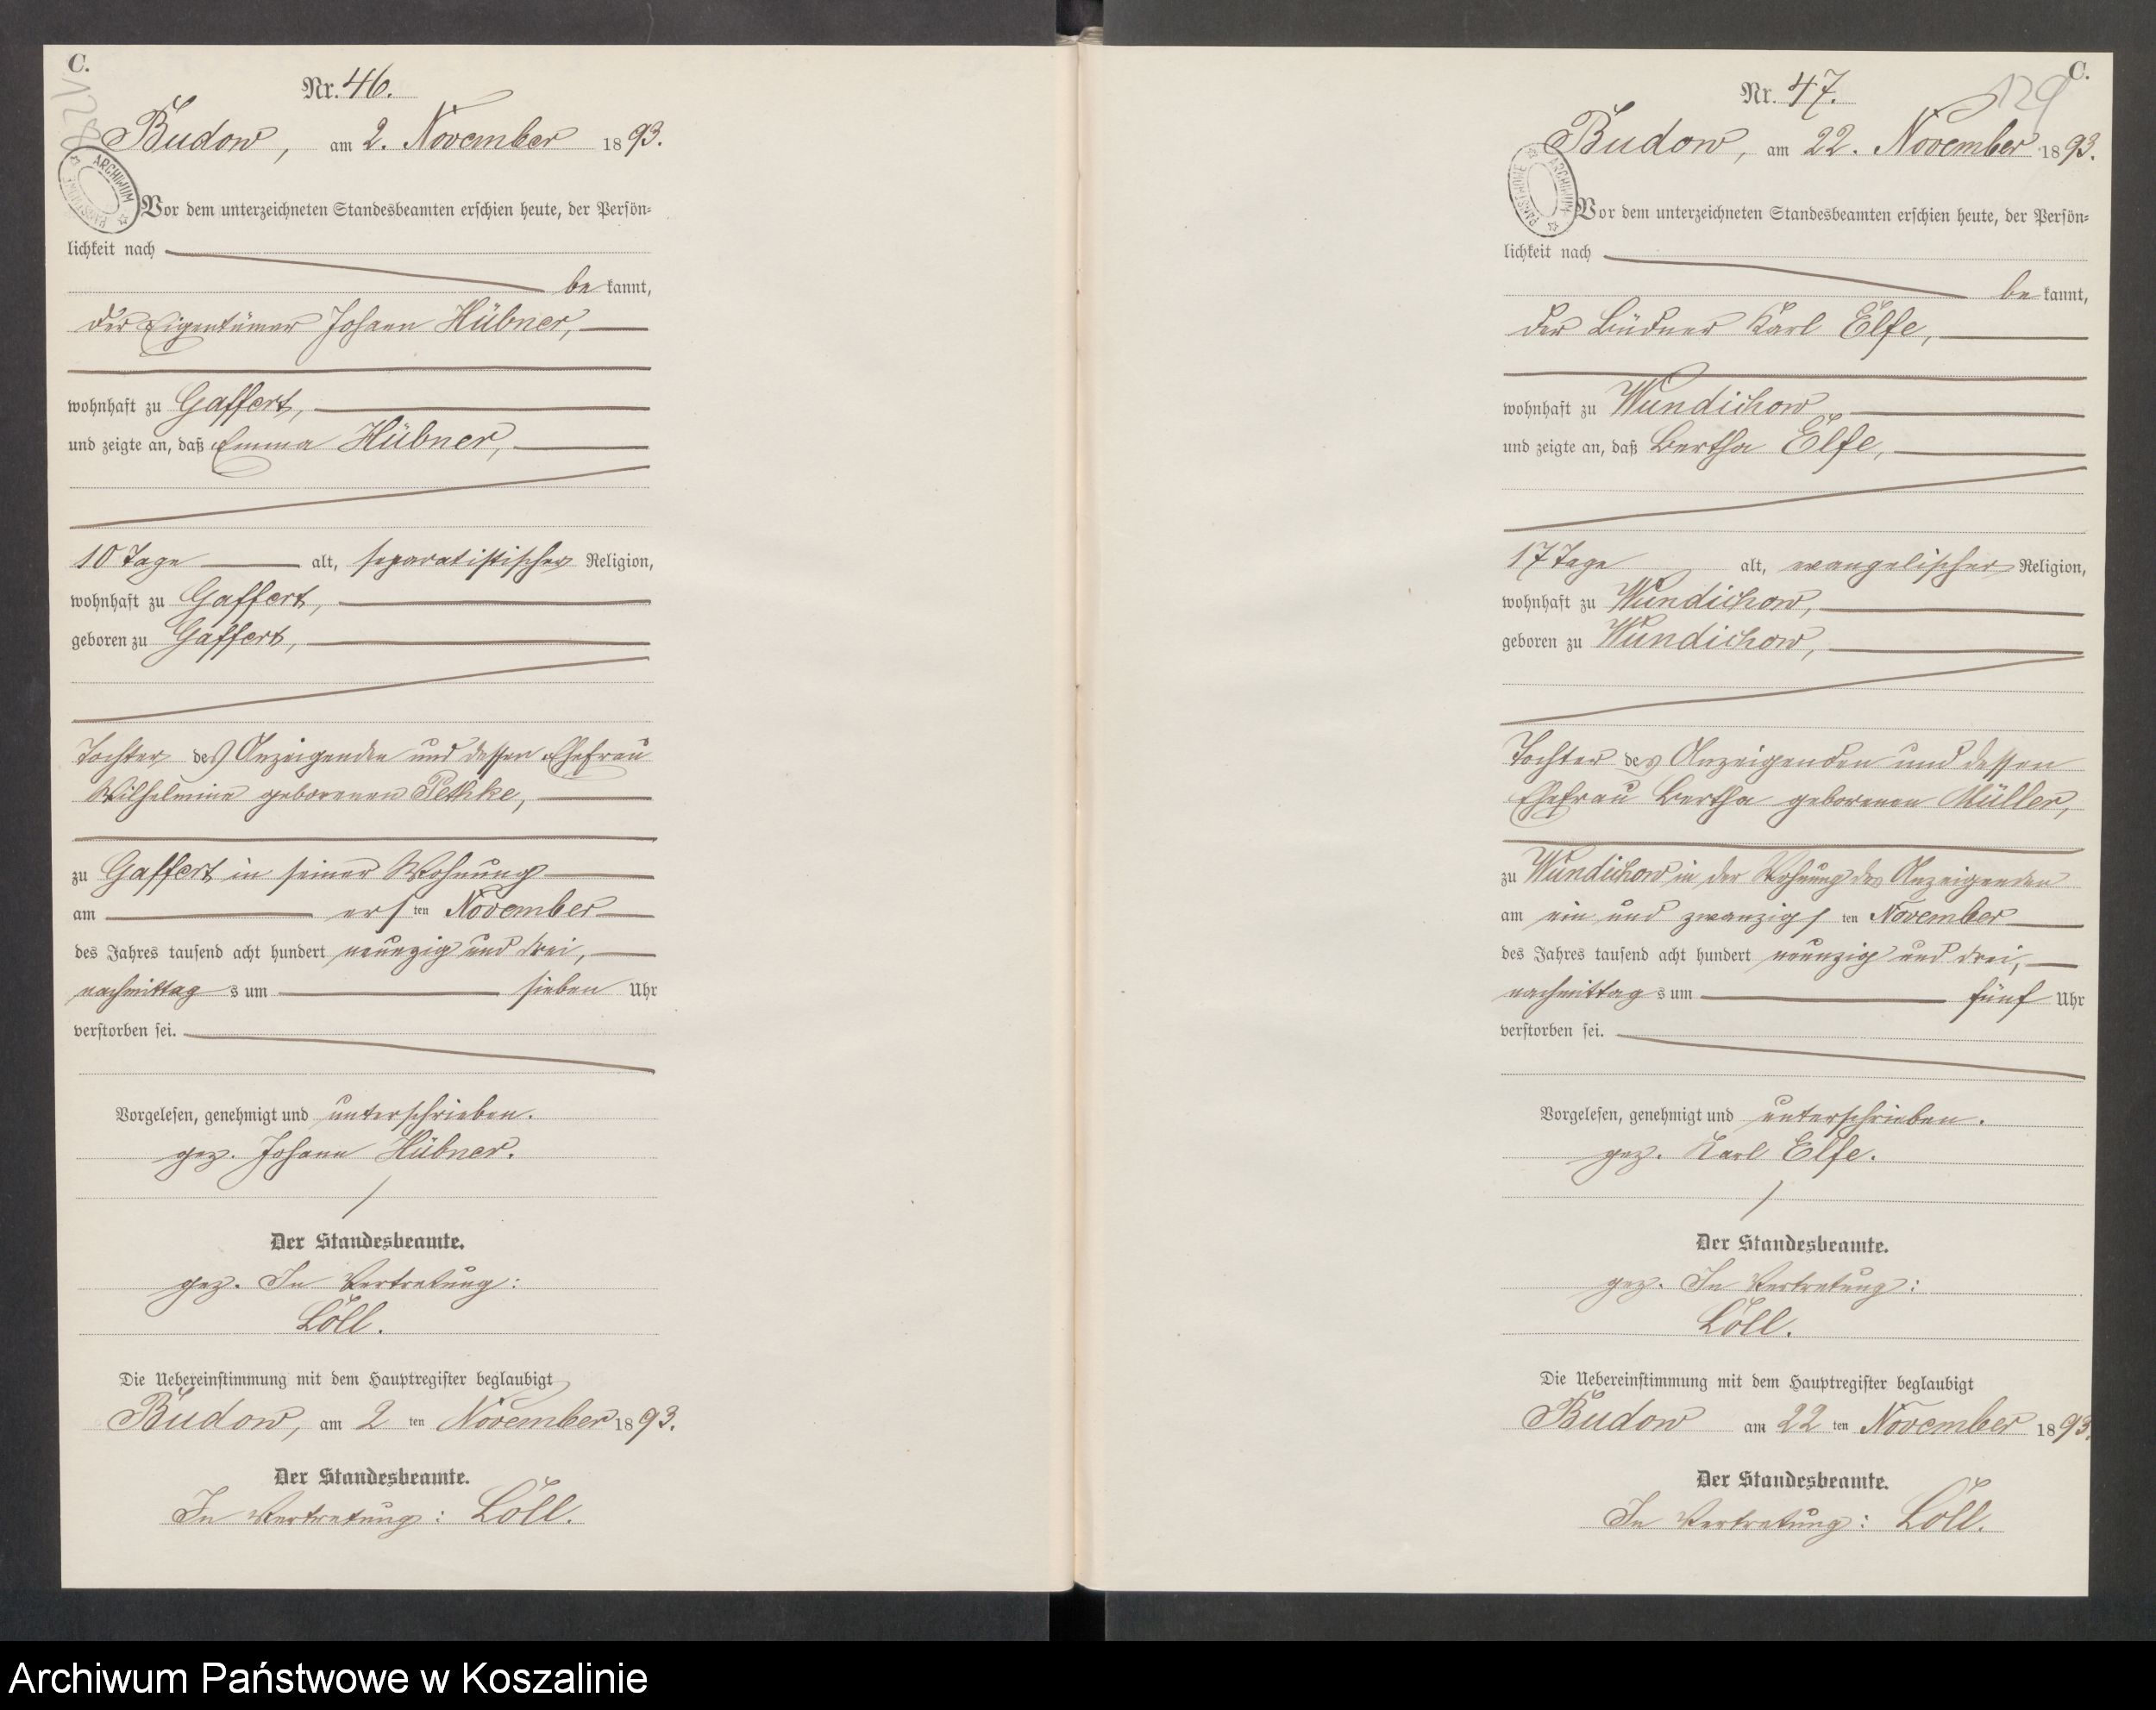 C.
Nr. 46.
Budow, am 2. November 1893.
ARCHIWUM PAŃSTWOWE
Vor dem unterzeichneten Standesbeamten erschien heute, der Persön-
lichkeit nach
be kannt,
der Eigentümer Johann Hübner,
wohnhaft zu Gaffert,
und zeigte an, daß Emma Hübner,
10 Tage alt, separatistischer Religion,
wohnhaft zu Gaffert,
geboren zu Gaffert,
Tochter des Anzeigenden und dessen Ehefrau
Wilhelmine geborenen Pethke,
zu Gaffert in seiner Wohnung
am ersten November
des Jahres tausend acht hundert neunzig und drei,
nachmittags um sieben Uhr
verstorben sei.
Vorgelesen, genehmigt und unterschrieben.
gez. Johann Hübner.
Der Standesbeamte.
gez. In Vertretung:
Löll.
Die Uebereinstimmung mit dem Hauptregister beglaubigt
Budow, am 2ten November 1893.
Der Standesbeamte.
In Vertretung: Löll.
C.
129
Nr. 47.
Budow, am 22. November 1893.
ARCHIWUM PAŃSTWOWE
Vor dem unterzeichneten Standesbeamten erschien heute, der Persön-
lichkeit nach
be kannt,
der Büdner Karl Elfe,
wohnhaft zu Wundichow
und zeigte an, daß Bertha Elfe,
17 Tage alt, evangelischer Religion,
wohnhaft zu Wundichow,
geboren zu Wundichow,
Tochter des Anzeigenden und dessen
Ehefrau Bertha geborenen Müller,
zu Wundichow in der Wohnung des Anzeigenden
am ein und zwanzigsten November
des Jahres tausend acht hundert neunzig und drei,
nachmittags um fünf Uhr
verstorben sei.
Vorgelesen, genehmigt und unterschrieben.
gez. Karl Elfe.
Der Standesbeamte.
gez. In Vertretung:
Löll.
Die Uebereinstimmung mit dem Hauptregister beglaubigt
Budow am 22ten November 1893.
Der Standesbeamte.
In Vertretung: Löll.
Archiwum Państwowe w Koszalinie